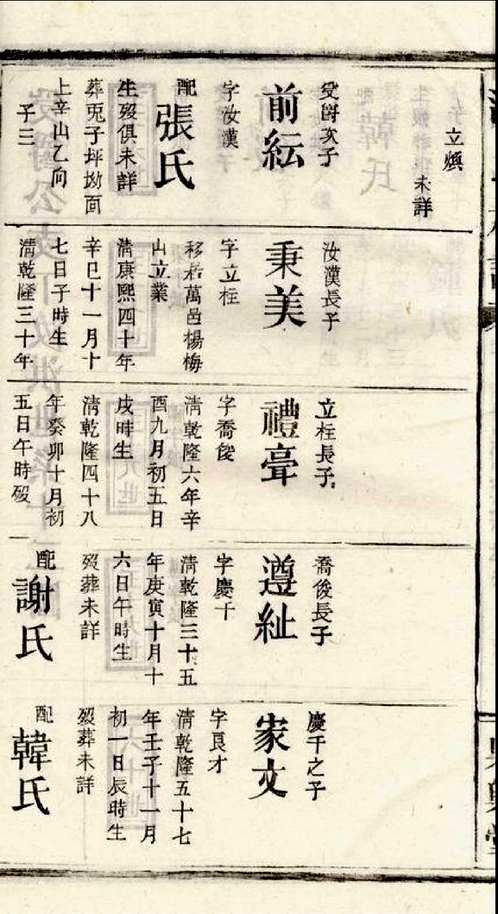 立嬩
未詳
受爵次子
前紜
字汝漢
配
張氏
生歿俱未詳
葬兎子坪坳面
上辛山乙向
子三
汝漢長子
秉美
字立柱
移居萬邑楊梅
山立業
清康熙四十年
辛巳十一月十
七日子時生
清乾隆三十年
立柱長子
禮亮
字喬俊
清乾隆六年辛
酉九月初五日
戌時生
清乾隆四十八
年癸卯十月初
五日午時歿
喬俊長子
遵紪
字慶千
清乾隆三十五
年庚寅十月十
六日午時生
歿葬未詳
配
謝氏
慶千之子
家文
字良才
清乾隆五十七
年壬子十一月
初一日辰時生
歿葬未詳
配
韓氏